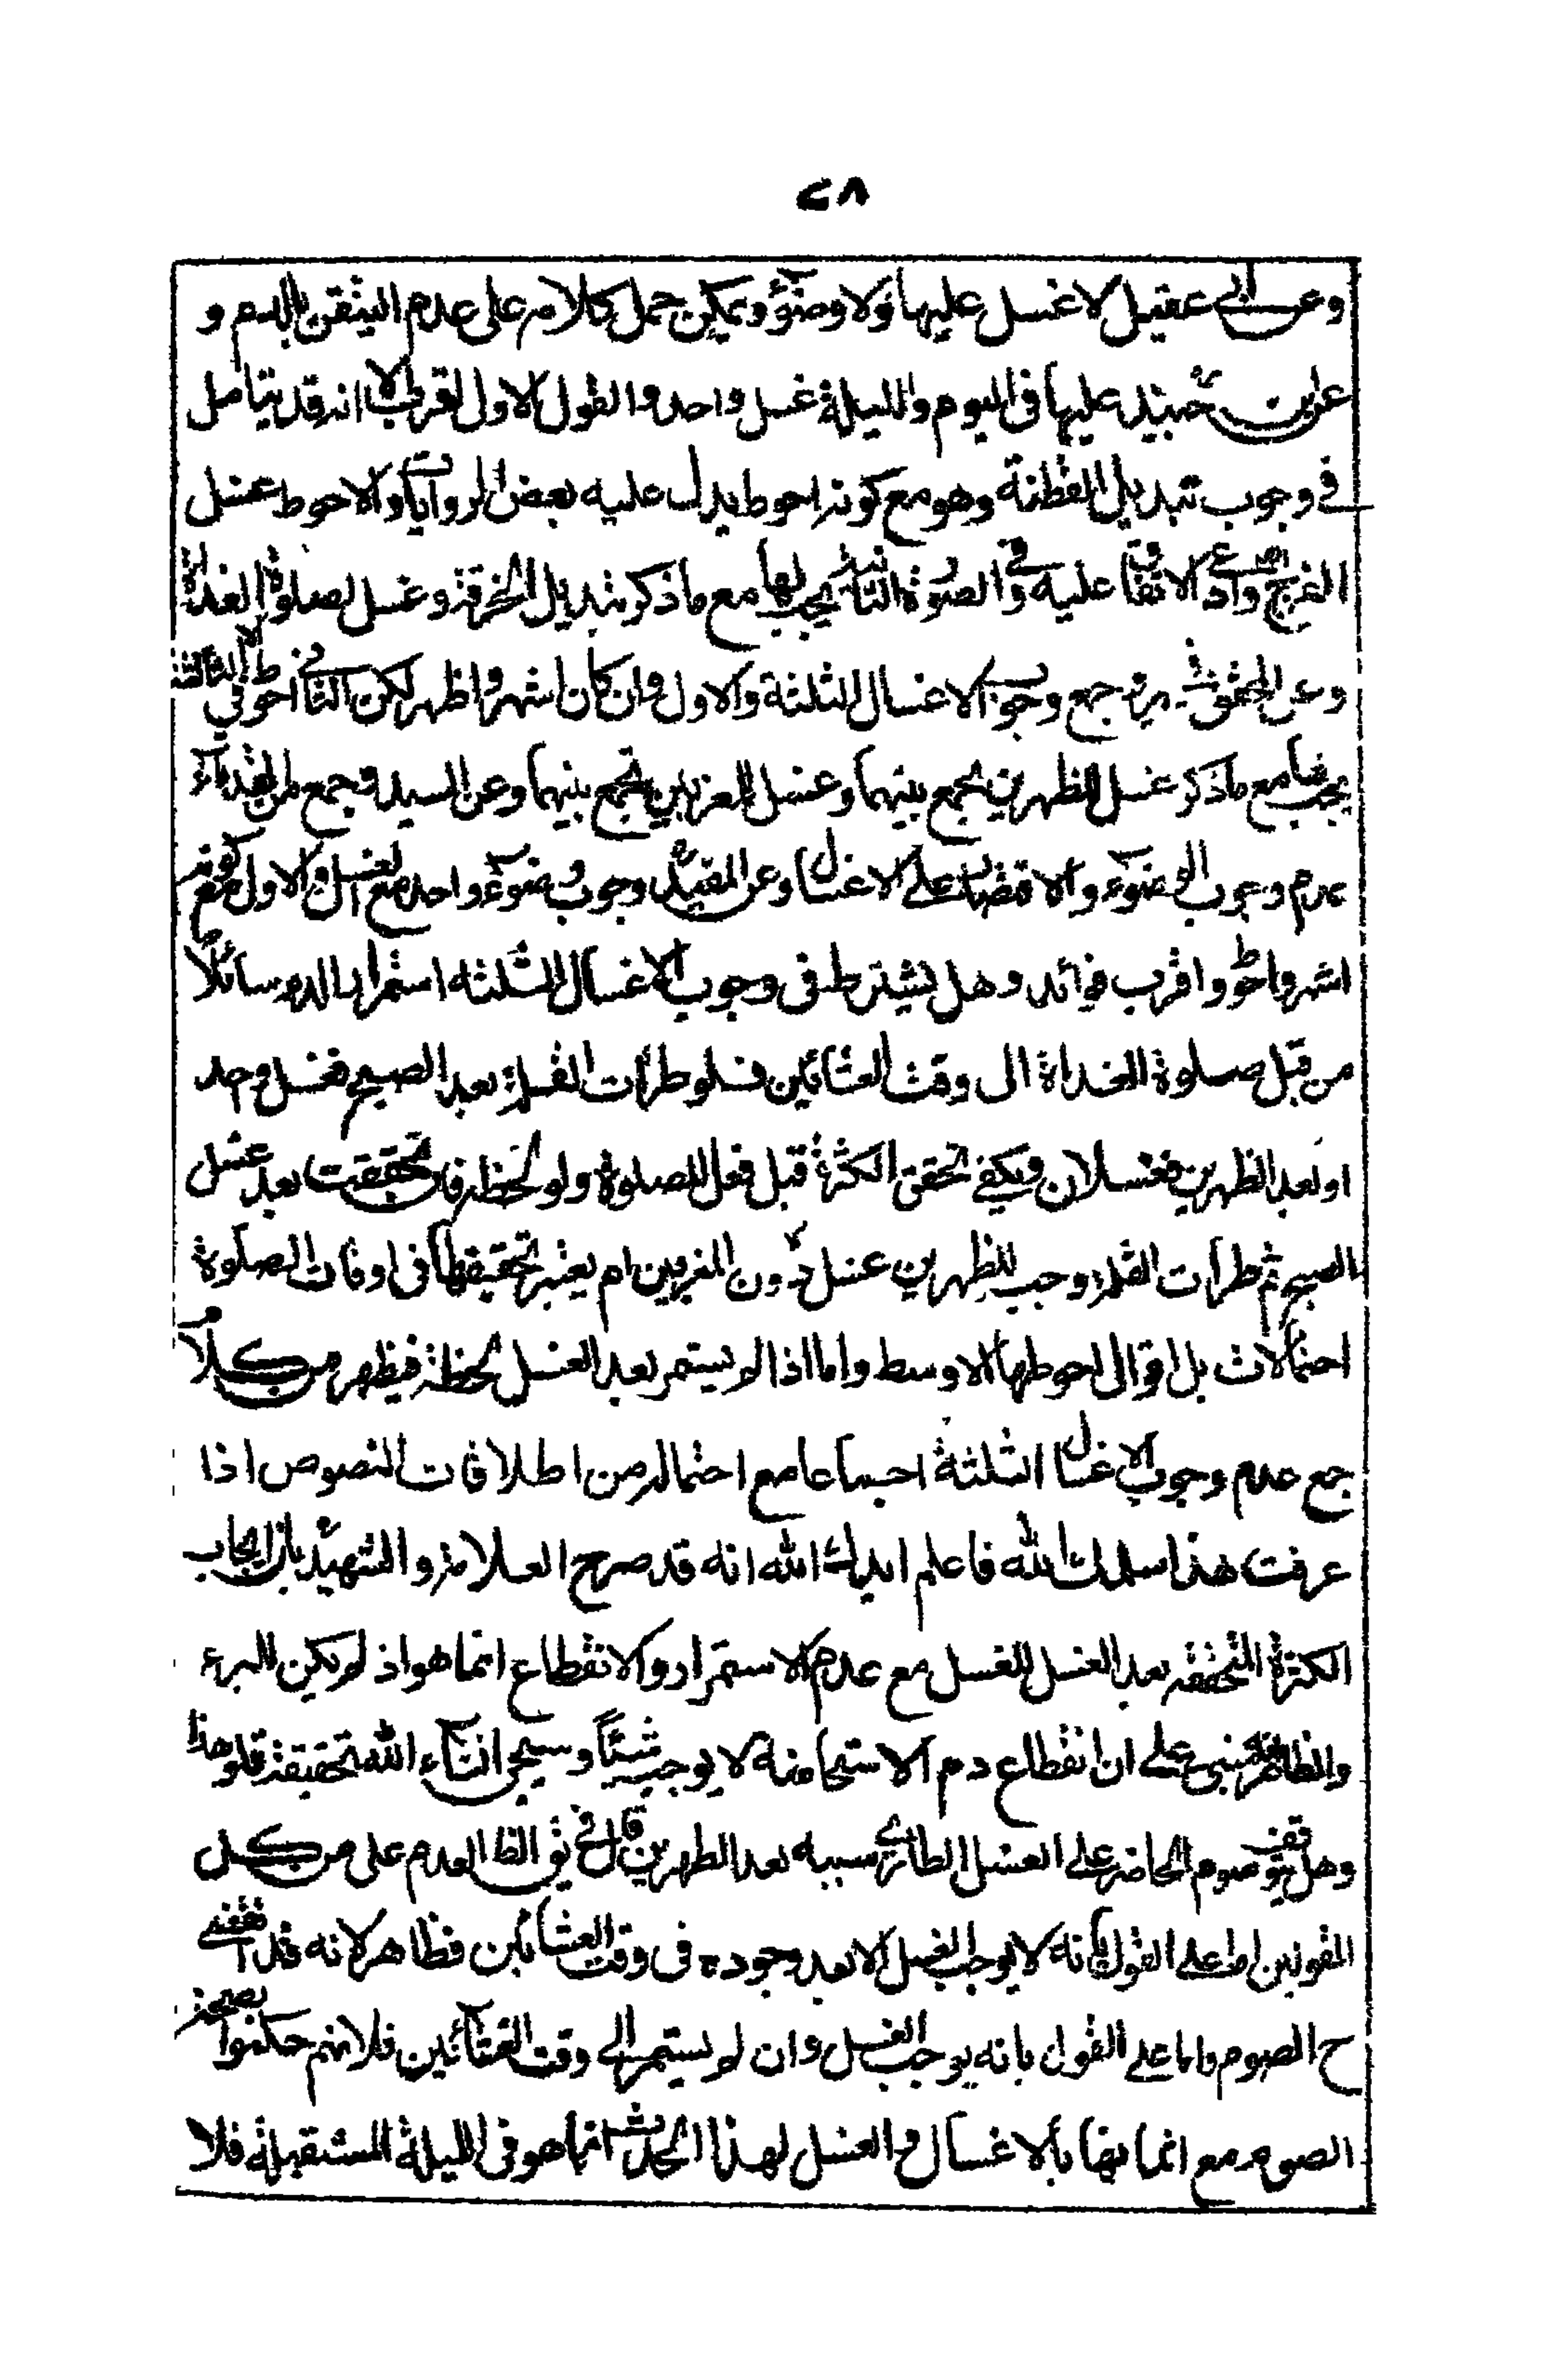 ٢٨
وعن ابي عقيل لا غسل عليها ولا وضوء ويمكن حمل كلامه على عدم الثقب بالدم و
عن ابن جنيد عليها في اليوم والليلة غسل واحد والقول الاول اقرب الا انه قد يتامل
في وجوب تبديل القطنة وهو مع كونه احوط يدل عليه بعض الروايات والاحوط غسل
الفرج وادعى الاتفاق عليه وفي الصورة الثانية يجب لها مع ما ذكر تبديل الخرقة وغسل لصلوة الغداة
وعن المحقق جمع وجوب الاغسال الثلثة والاول وان كان اشهر واظهر لكن الثاني احوط وفي الثالثة
يجب مع ما ذكر غسل للظهرين تجمع بينهما وغسل للمغربين تجمع بينهما وعن السيد وجمع من القدماء
عدم وجوب الوضوء والاقتصار على الاغسال وعن المفيد وجوب وضوء واحد مع الغسل والاول مع كونه
اشهر واحوط واقرب فوائد وهل يشترط في وجوب الاغسال الثلثه استمرار الدم سائلا
من قبل صلوة الغداة الى وقت العشائين فلو طرأت القلة بعد الصبح فغسل واحد
او بعد الظهرين فغسلان ويكفي تحقق الكثرة قبل فعل الصلوة ولو لحظة فان تحققت بعد غسل
الصبح ثم طرأت القلة وجب للظهرين غسل دون المغربين ام يعتبر تحقيقها في اوقات الصلوة
احتمالات بل اقوال احوطها الاوسط واما اذا لم يستمر بعد الغسل لحظة فيظهر من كلام
جمع عدم وجوب الاغسال الثلثة اجماعا مع احتماله من اطلاقات النصوص اذا
عرفت هذا سلمك الله فاعلم ايدك الله انه قد صرح العلامة والشهيد بان ايجاب
الكثرة المتحققه بعد الغسل للغسل مع عدم الاستمرار والانقطاع انما هو اذ لم يكن للبرء
والظاهر انه مبني على ان انقطاع دم الاستحاضة لا يوجب شيئا وسيجئ انشاء الله تحقيقة قلو هذا
وهل يتوقف صوم الحاضر على الغسل الطاري سببه بعد الظهرين قال في الظا العدم على من كل
القولين اما على القول بانه لا يوجب الغسل الا بعد وجوده في وقت العشائين فظاهر لانه قد انقضى
ح الصوم واما على القول بانه يوجب الغسل وان لم يستمر الى وقت العشائين فلانهم حكموا بصحة
الصوم مع اتيانها بالاغسال والغسل لهذا الحدث انما هو في الليلة المستقبلة فلا